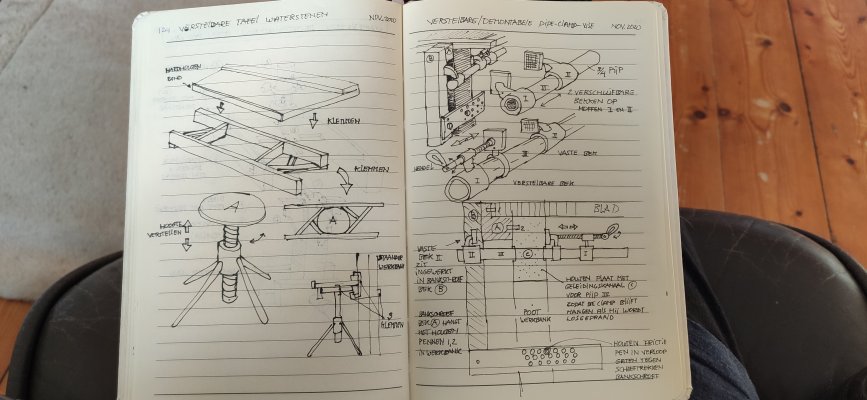 124 VERSTELBARE TAFEL WATERSTENEN NOV. 2020
HARDHOUTEN
KLEMMEN
KLEMMEN
A
HOOGTE
VERSTELLEN
A
WERKBANK
KLEMMEN
VERSTELBARE/DEMONTABELE PIPE-CLAMP-VISE NOV. 2020
B
A
I
III
II
3/4 PIJP
2 VERSCHUIFBARE
BEKKEN OP
MOFFEN I EN II
HENDEL
I
III
II
VASTE BEK
VERSTELBARE BEK
BLAD
B
1
A
2
VASTE
BEK II
ZIT
INGEWERKT
IN BANKSCHROEF
BEK B
II
III
C
I
HOUTEN PLAAT MET
GELEIDINGSKANAAL C
VOOR PIJP III
ZODAT DE CLAMP BLIJFT
HANGEN ALS HIJ WORDT
LOSGEDRAAID
BANKSCHROEF
BEK A HANGT
MET HOUTEN
PENNEN 1,2
IN WERKBANK
POOT
WERKBANK
HOUTEN FRICTIE
PEN IN VERLOOP
GATEN TEGEN
SCHEEFTREKKEN
BANKSCHROEF